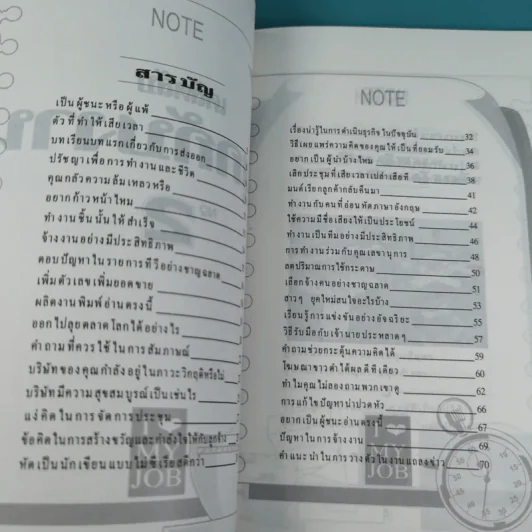 NOTE
สารบัญ
เป็นผู้ชนะหรือผู้แพ้
ตัวที่ทำให้เสียเวลา
บทเรียนบทแรกเกี่ยวกับการส่งออก
ปรัชญาเพื่อการทำงานและชีวิต
คุณกลัวความล้มเหลวหรือ
อยากก้าวหน้าไหม
ทำงานชิ้นนั้นให้สำเร็จ
จ้างงานอย่างมีประสิทธิภาพ
ตอบปัญหาในรายการทีวีอย่างชาญฉลาด
เพิ่มตัวเลขเพิ่มยอดขาย
ผลิตงานพิมพ์อ่านตรงนี้
ออกไปลุยตลาดโลกได้อย่างไร
คำถามที่ควรใช้ในการสัมภาษณ์
บริษัทของคุณกำลังอยู่ในภาวะวิกฤติหรือไม่
บริษัทมีความสุขสมบูรณ์เป็นเช่นไร
แง่คิดในการจัดการประชุม
ข้อคิดในการสร้างขวัญและกำลังใจให้กับลูกจ้าง
หัดเป็นนักเขียนแบบไม่ซีเรียสดีกว่า
MY JOB
NOTE
เรื่องน่ารู้ในการดำเนินธุรกิจในปัจจุบัน 32
วิธีเผยแพร่ความคิดของคุณให้เป็นที่ยอมรับ 34
อยากเป็นผู้นำบ้างไหม 36
เลิกประชุมที่เสียเวลาเปล่าเสียที 38
มนต์เรียกลูกค้ากลับคืนมา 41
ทำงานกับคนที่อ่อนหัดภาษาอังกฤษ 42
ใช้ความมีชื่อเสียงให้เป็นประโยชน์ 44
ทำงานเป็นทีมอย่างมีประสิทธิภาพ 46
การทำงานร่วมกับคุณเลขานุการ 48
ลดปริมาณการใช้กระดาษ 50
เลือกจ้างคนอย่างชาญฉลาด 51
สาวๆ ยุคใหม่สนใจอะไรบ้าง 53
เรียนรู้การแข่งขันอย่างอัจฉริยะ 55
วิธีรับมือกับเจ้านายประหลาดๆ 57
คำถามช่วยกระตุ้นความคิดได้ 59
โฆษณาขาวดำได้ผลดีทีเดียว 60
ทำไมคุณไม่ลองถามพวกเขาดู 62
การแก้ไขปัญหาน่าปวดหัว 66
อยากเป็นผู้ชนะอ่านตรงนี้ 67
ปัญหาในการจ้างงาน 69
คำแนะนำในการวางตัวในงานแถลงข่าว 70
MY JOB